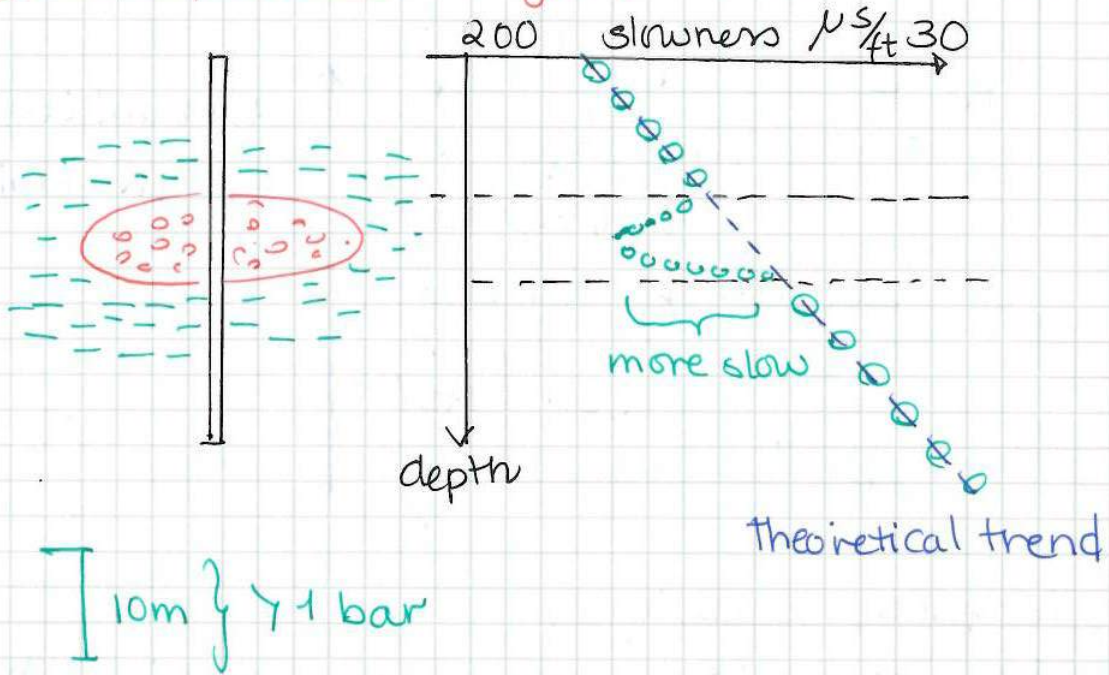 200 slowness μs/ft 30
more slow
depth
theoretical trend
10m } > 1 bar